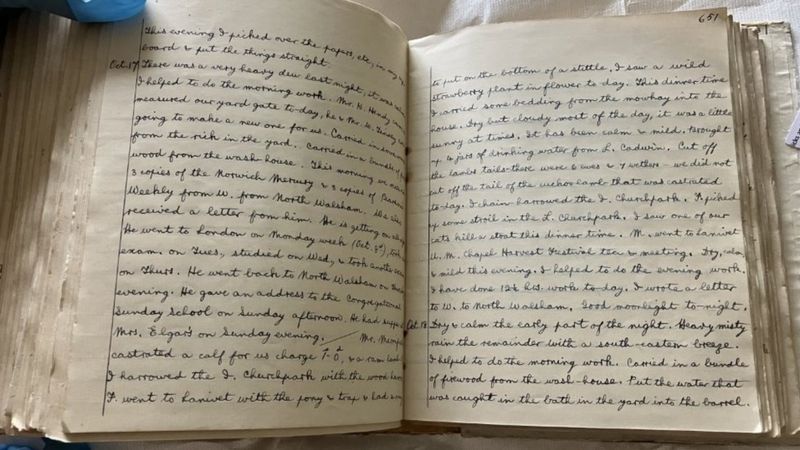 This evening I picked over the papers, etc, in my
board & put the things straight.
Oct. 17 There was a very heavy dew last night, it was
I helped to do the morning work. Mr. H. Hendy
measured our yard gate to-day, he & Mr. H. Hendy
going to make a new one for us. Carried in some
from the rick in the yard. Carried in a bundle of
wood from the wash house. This morning we
3 copies of the Norwich Mercury & 3 copies of
Weekly from W. from North Walsham. We also
received a letter from him. He is getting on
He went to London on Monday week (Oct. 8th), took
exam. on Tues, studied on Wed, & took another
on Thurs. He went back to North Walsham on
evening. He gave an address to the Congregational
Sunday school on Sunday afternoon. He had supper
Mrs. Elgar's on Sunday evening. Mr.
castrated a calf for us charge & a ram lamb
I harrowed the I. Churchpark with the wood
F. went to Lanivet with the pony & trap & had a
651
to put on the bottom of a stittle. I saw a wild
strawberry plant in flower to-day. This dinner time
I carried some bedding from the mowhay into the
house. Dry but cloudy most of the day, it was a little
sunny at times. It has been calm & mild. Brought
up 4 jars of drinking water from L. Cadwin. Cut off
the lambs tails—there were 6 ewes & 7 wethers—we did not
cut off the tail of the lamb that was castrated
to-day. I chain-harrowed the I. Churchpark. F. picked
up some stroil in the L. Churchpark. I saw one of our
cats kill a stoat this dinner time. M. went to Lanivet
U. M. Chapel Harvest Festival tea & meeting. Dry, calm,
& mild this evening. I helped to do the evening work.
I have done 12½ hrs. work to-day. I wrote a letter
to W. to North Walsham. Good moonlight to-night.
Oct. 18. Dry & calm the early part of the night. Heavy misty
rain the remainder with a south-eastern breeze.
I helped to do the morning work. Carried in a bundle
of firewood from the wash-house. Put the water that
was caught in the bath in the yard into the barrel.